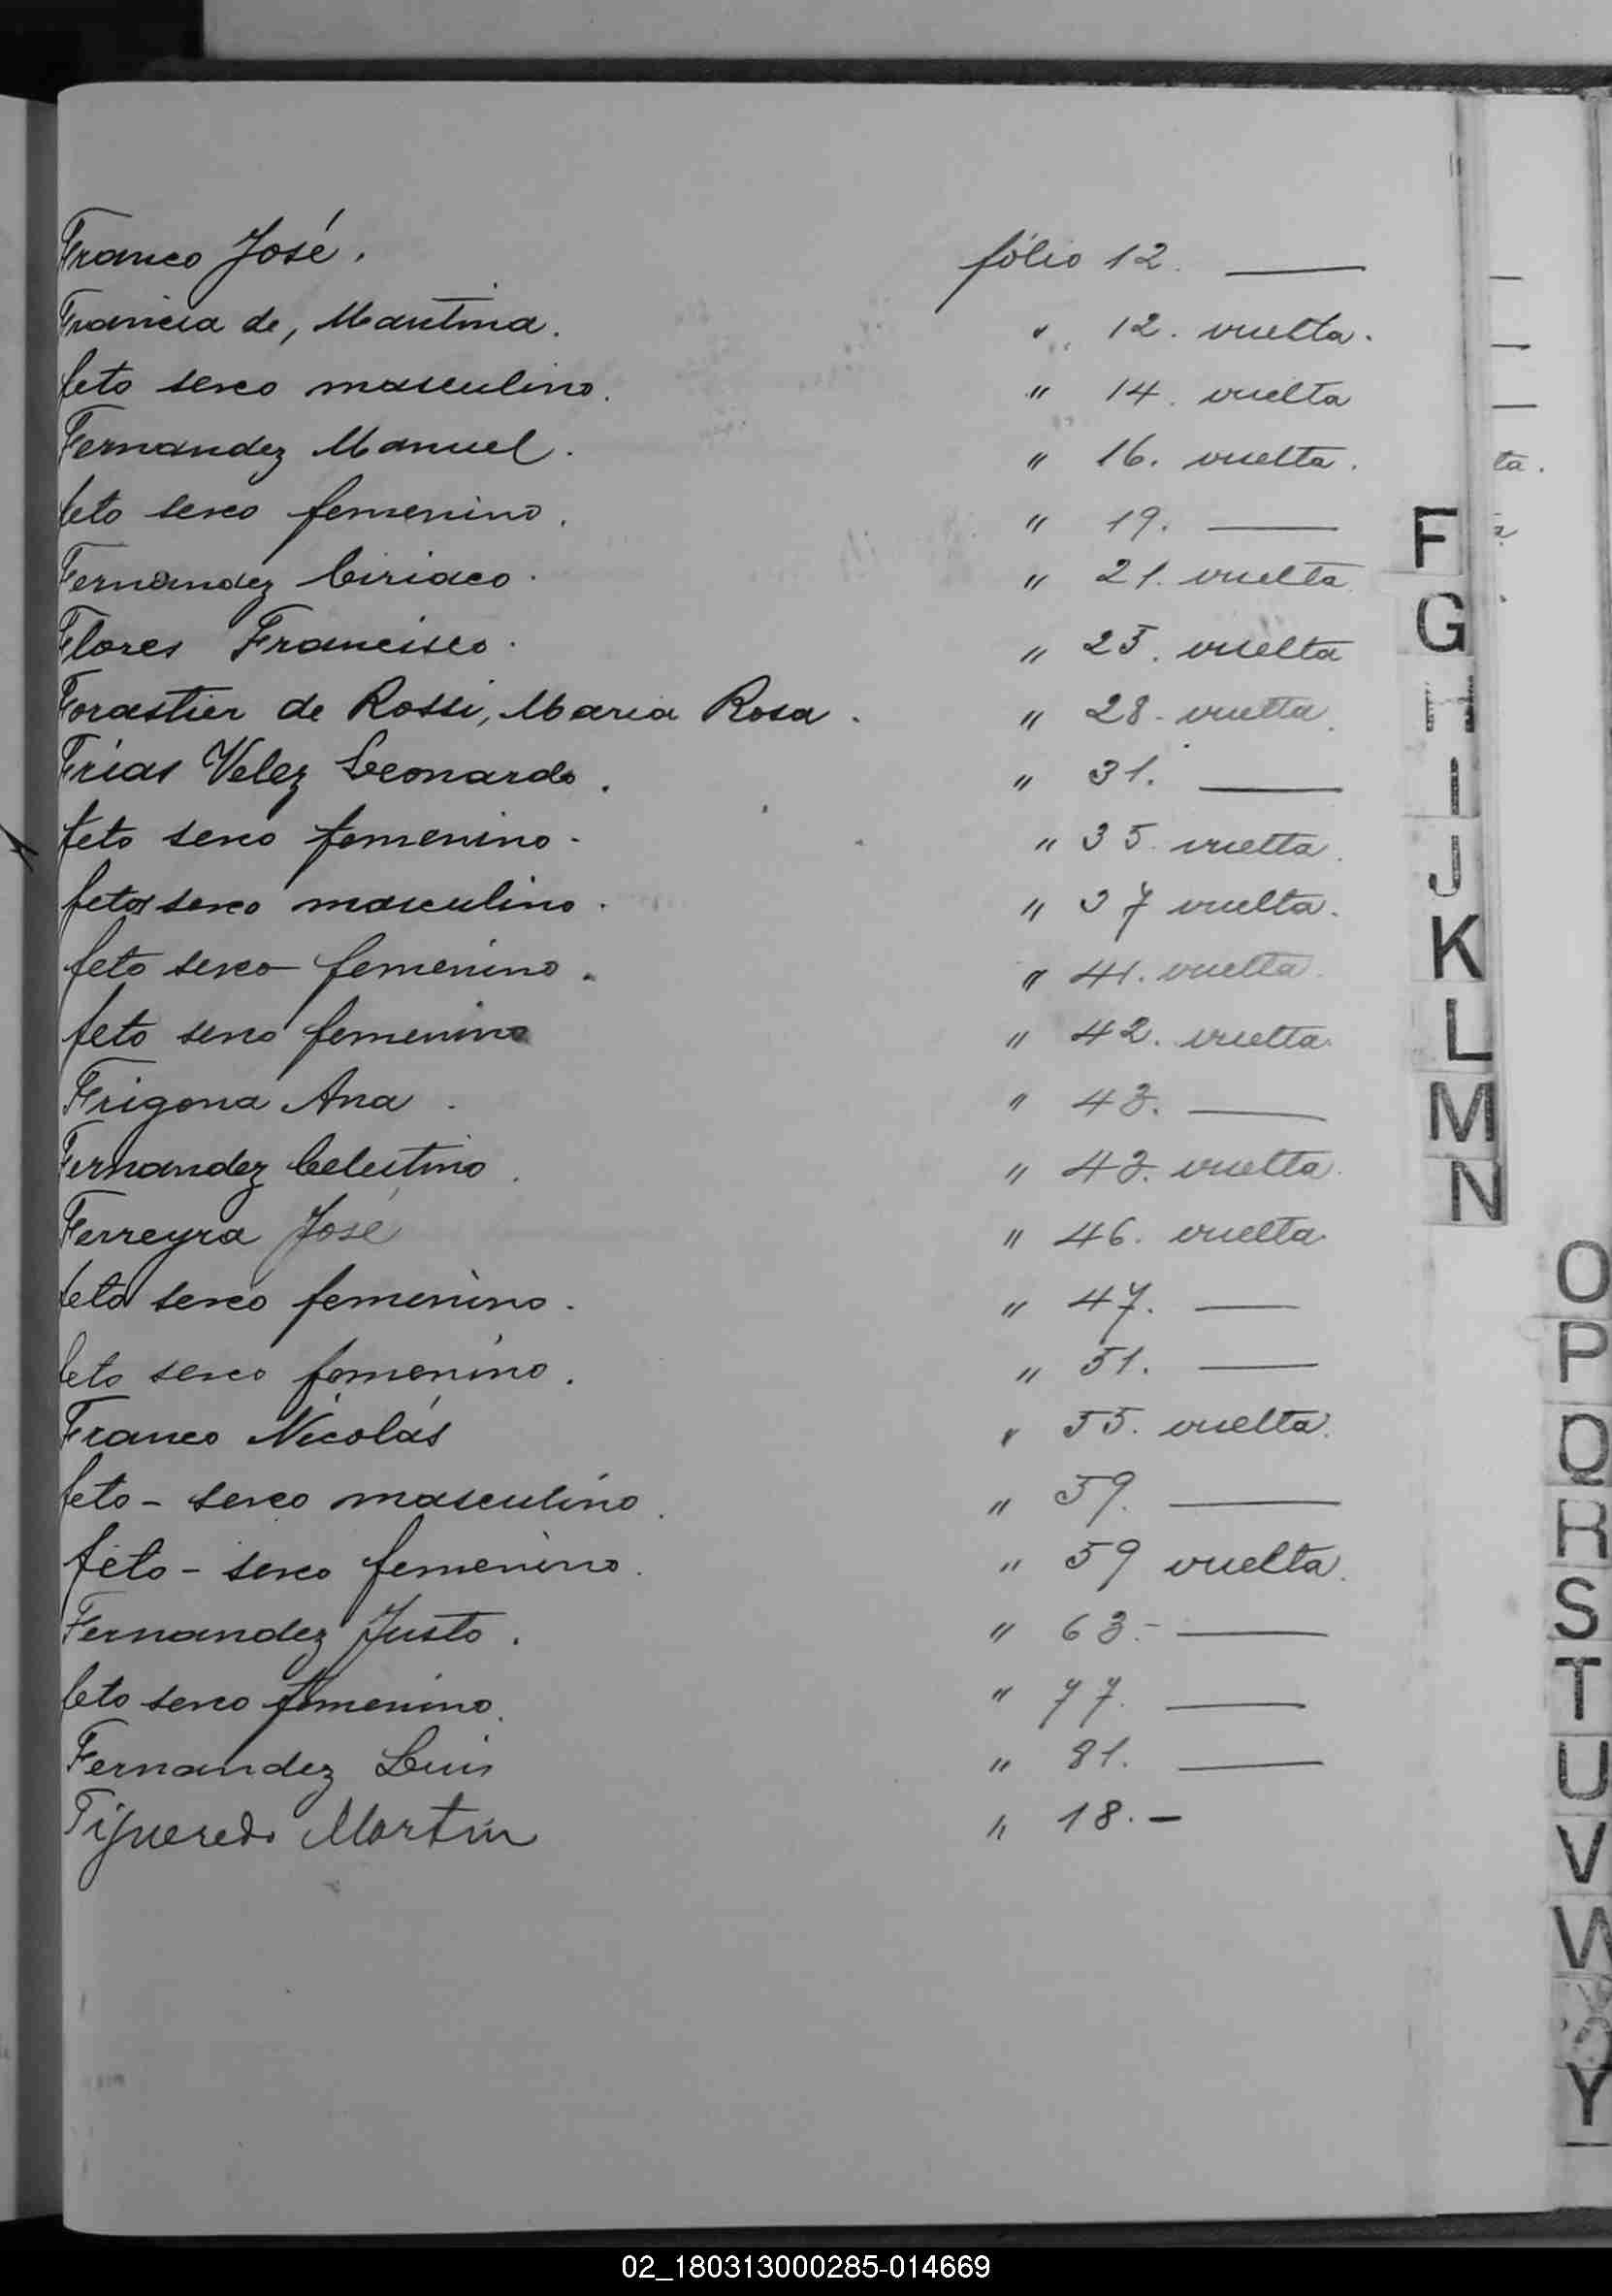 Franco José. fólio 12. —
Francia de, Martina. " 12. vuelta.
feto sexo masculino. " 14. vuelta
Fernandez Manuel. " 16. vuelta.
feto sexo femenino. " 19. —
Fernandez Ciriaco. " 21. vuelta
Flores Francisco. " 25. vuelta
Forastier de Rossi, Maria Rosa. " 28. vuelta.
Frias Velez Leonardo. " 31. —
feto sexo femenino. " 35. vuelta.
feto sexo masculino. " 37 vuelta.
feto sexo femenino. " 41. vuelta.
feto sexo femenino " 42. vuelta.
Frigona Ana. " 43. —
Fernandez Celestino. " 43. vuelta.
Ferreyra José " 46. vuelta.
feto sexo femenino. " 47. —
feto sexo femenino. " 51. —
Franco Nicolás " 55. vuelta.
feto - sexo masculino. " 59. —
feto - sexo femenino. " 59 vuelta.
Fernandez Justo. " 63. —
feto sexo femenino. " 77. —
Fernandez Luis " 81. —
Figueredo Martin " 18. —
F
G
H
I
J
K
L
M
N
O
P
Q
R
S
T
U
V
W
Y
02_180313000285-014669